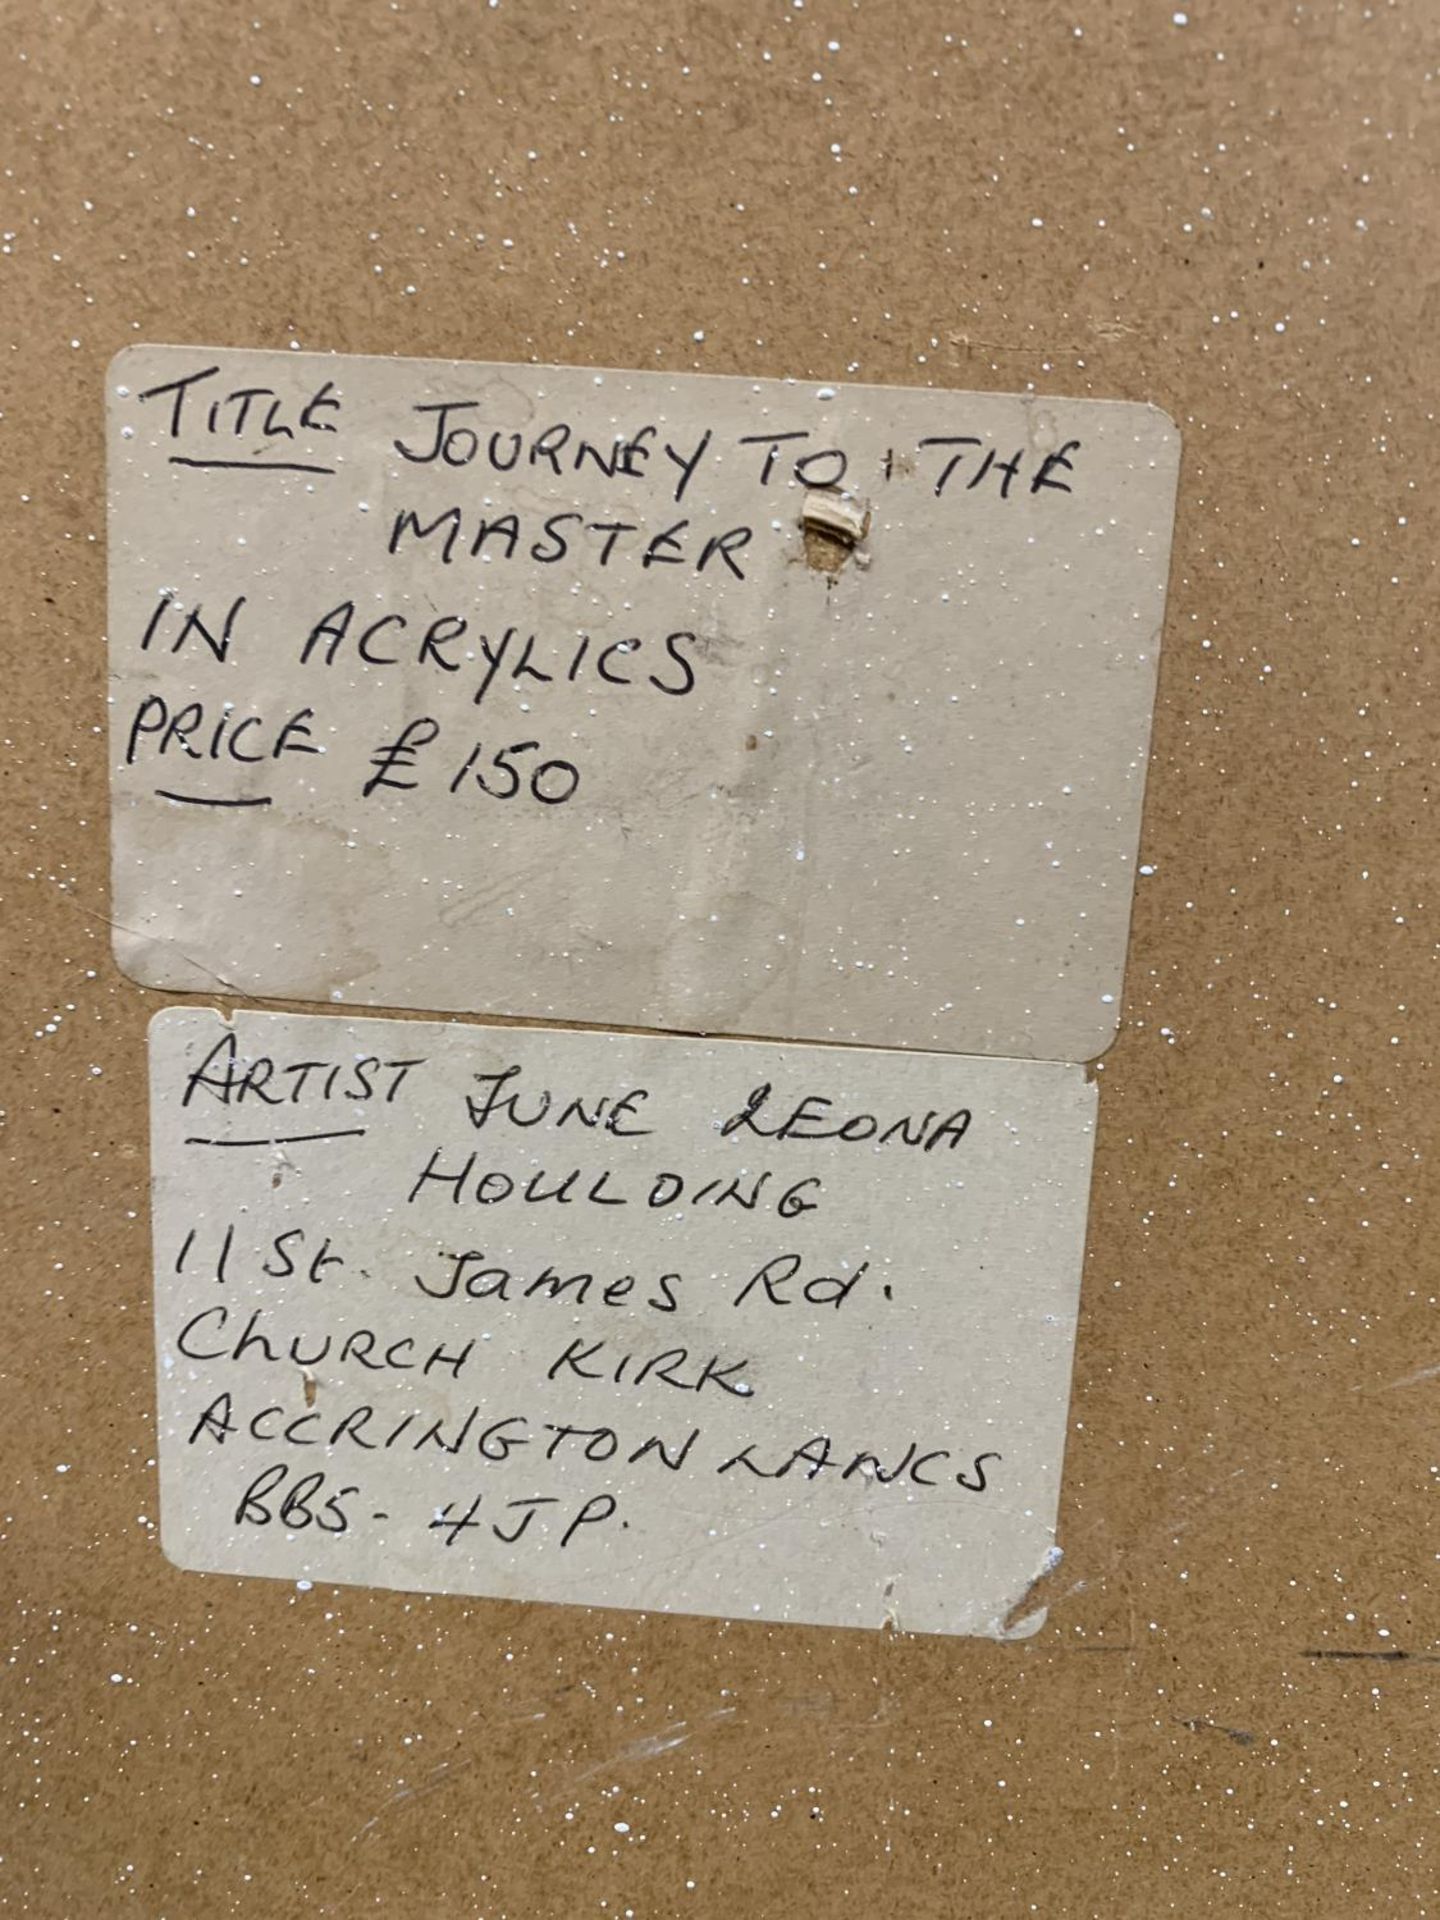 TITLE JOURNEY TO THE
MASTER
IN ACRYLICS
PRICE £150
ARTIST JUNE LEONA
HOULDING
11 St. James Rd.
ChURCH KIRK
ACCRINGTON LANCS
BB5 - 4JP.